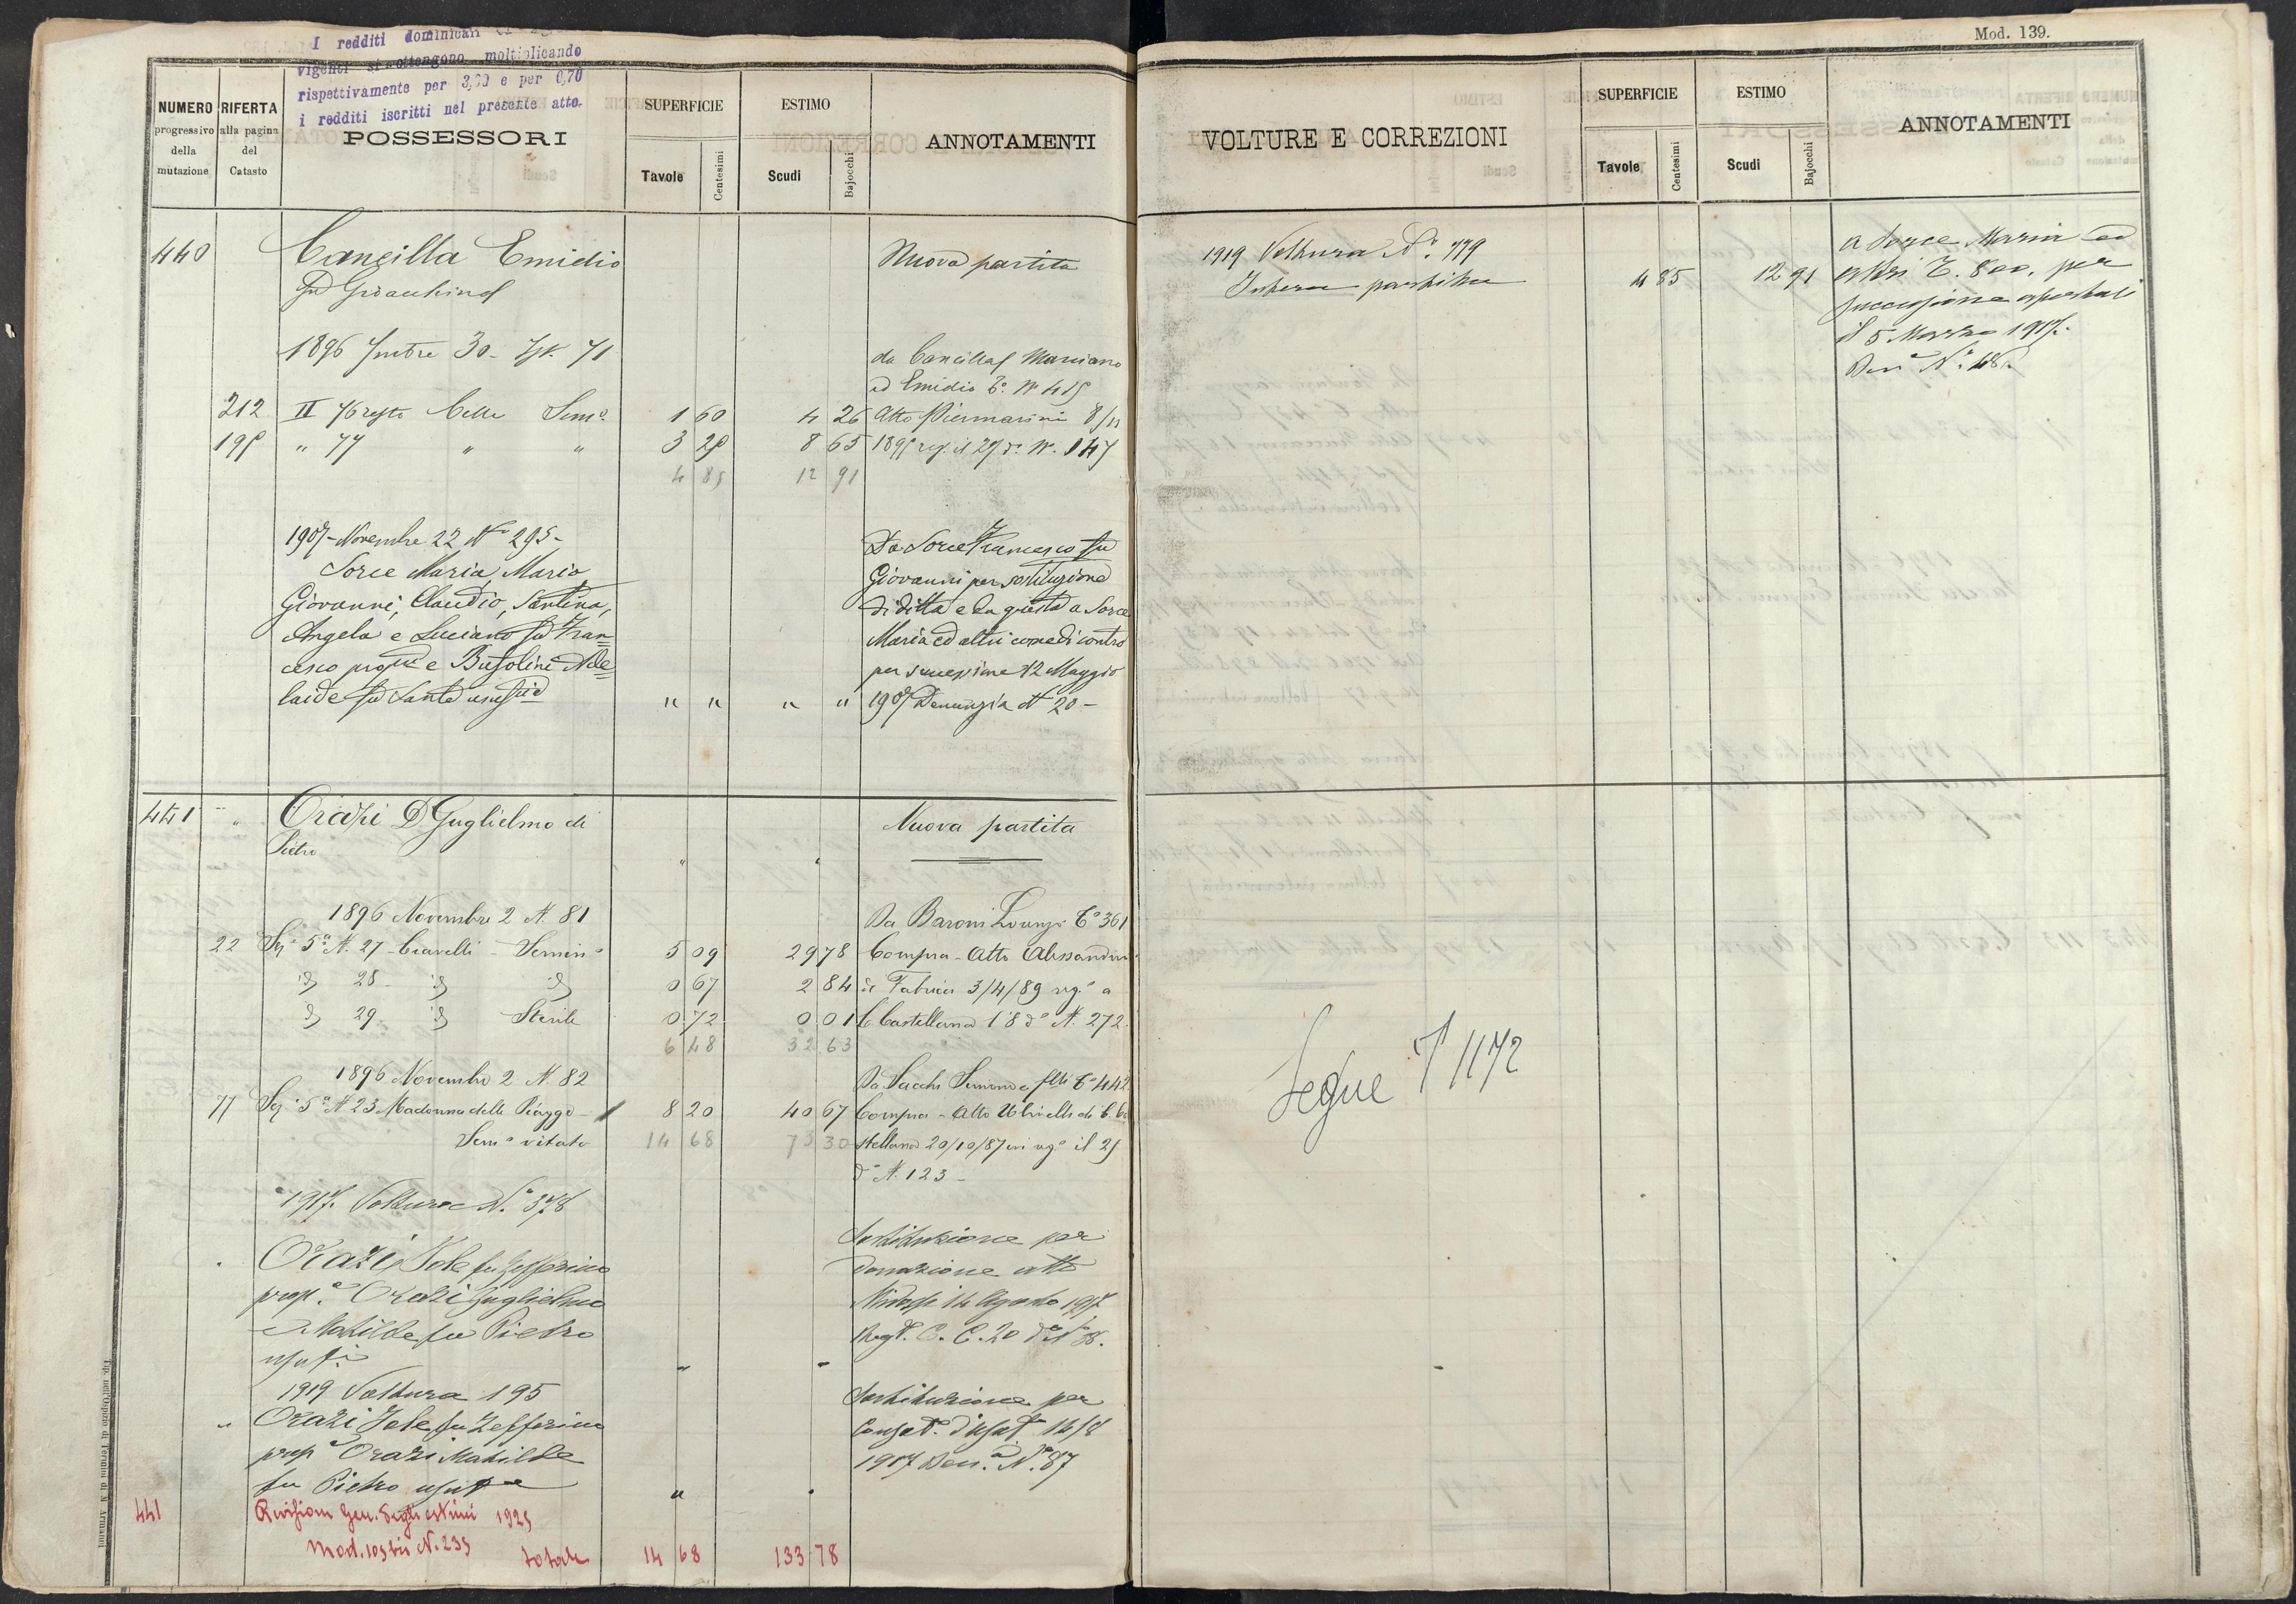 I redditi dominicali
vigenti si ottengono moltiplicando
rispettivamente per 3,70 e per 0,70
i redditi iscritti nel presente atto.
NUMERO progressivo della mutazione
RIFERTA alla pagina del Catasto
POSSESSORI
SUPERFICIE
Tavole Centesimi
ESTIMO
Scudi Bajocchi
ANNOTAMENTI
440 Cancilla Emidio Nuova partita
fu Gioacchino
1896 30 71 da Cancilla Marciano
ed Emidio
212 II 76 resto Celle Sem° 1 60 4 26 Atto Piermarini 8/11
" 77 " " 3 25 8 65
4 85 12 91
1907 - Novembre 22 N° 295 -
Sorce Maria, Mario Da Sorce Francesco fu
Giovanni, Claudio, Santina, Giovanni per sostituzione
Angela e Luciano fu Fran= di ditta e da questa a Sorce
cesco e Bufolini Ade= Maria ed altri come di contro
laide fu Sante per successione 12 Maggio
" " " " 1907 Denunzia N° 20 -
441 " Orazi D. Guglielmo di Nuova partita
Pietro " "
1896 Novembre 2 N. 81 Da Baroni Lorenzo T° 361
22 Sez. 5ª N. 27 - Ciavelli - Semin° 5 09 29 78 Compra - Atto Alessandrini
id 28 - id id 0 67 2 84 di Fabrica 3/4/89 reg° a
id 29 - id Sterile 0 72 0 01 C. Castellana 18 d° N. 272
6 48 32 63
1896 Novembre 2 N. 82 Da Sacchi Simone e flli T° 442
77 Sez. 5ª N 23 Madonna delle Piagge - 8 20 40 67 Compra - Atto
Sem° vitato 14 68 73 30 stellana 20/10/87 reg° il 25
d° N. 123 -
1917. Voltura N.° 378
Orazi Iole fu Zefferino Sostituzione per
prop.ª Orazi Guglielmo donazione atto
e Matilde fu Pietro 14 Agosto 1917
usuf.i Reg. C. C. 20 d° N° 88.
1919 Voltura 195 Sostituzione per
" Orazi Iole fu Zefferino
prop.ª Orazi Matilde 1917 Den.ª N.° 87
fu Pietro "
441 Revisione Gen. degli estimi 1925
Mod. 103 bis N. 235 totale 14 68 133 78
Tip. nell'Ospizio di Termini di N. Armanni
Mod. 139.
VOLTURE E CORREZIONI
SUPERFICIE
Tavole Centesimi
ESTIMO
Scudi Bajocchi
ANNOTAMENTI
1919 Voltura N.° 779 a Sorce Maria ed
Intera partita 4 85 12 91 altri T. 800, per
successione apertasi
il 5 Marzo 1917.
Den.ª N.°
Segue T 1172